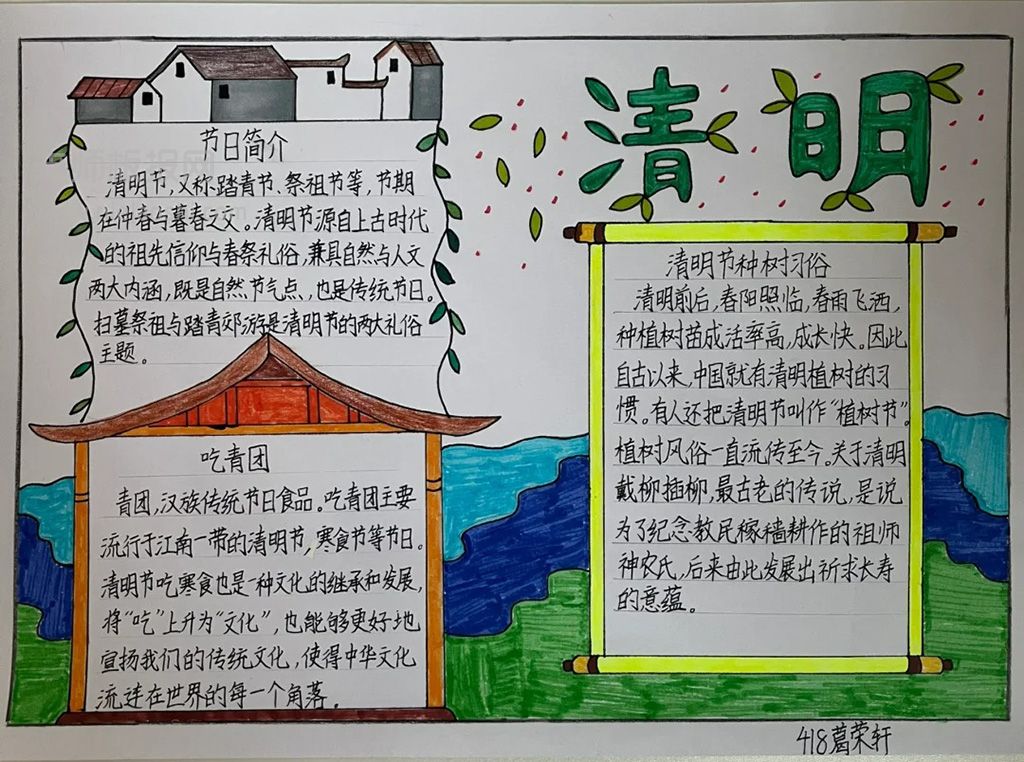 清明
节日简介
清明节,又称踏青节、祭祖节等,节期
在仲春与暮春之交。清明节源自上古时代
的祖先信仰与春祭礼俗,兼具自然与人文
两大内涵,既是自然节气点,也是传统节日。
扫墓祭祖与踏青郊游是清明节的两大礼俗
主题。
吃青团
青团,汉族传统节日食品。吃青团主要
流行于江南一带的清明节,寒食节等节日。
清明节吃寒食也是一种文化的继承和发展,
将“吃”上升为“文化”,也能够更好地
宣扬我们的传统文化,使得中华文化
流连在世界的每一个角落。
清明节种树习俗
清明前后,春阳照临,春雨飞洒,
种植树苗成活率高,成长快。因此
自古以来,中国就有清明植树的习
惯。有人还把清明节叫作“植树节”。
植树风俗一直流传至今。关于清明
戴柳插柳,最古老的传说,是说
为了纪念教民稼穑耕作的祖师
神农氏,后来由此发展出祈求长寿
的意蕴。
418葛荣轩